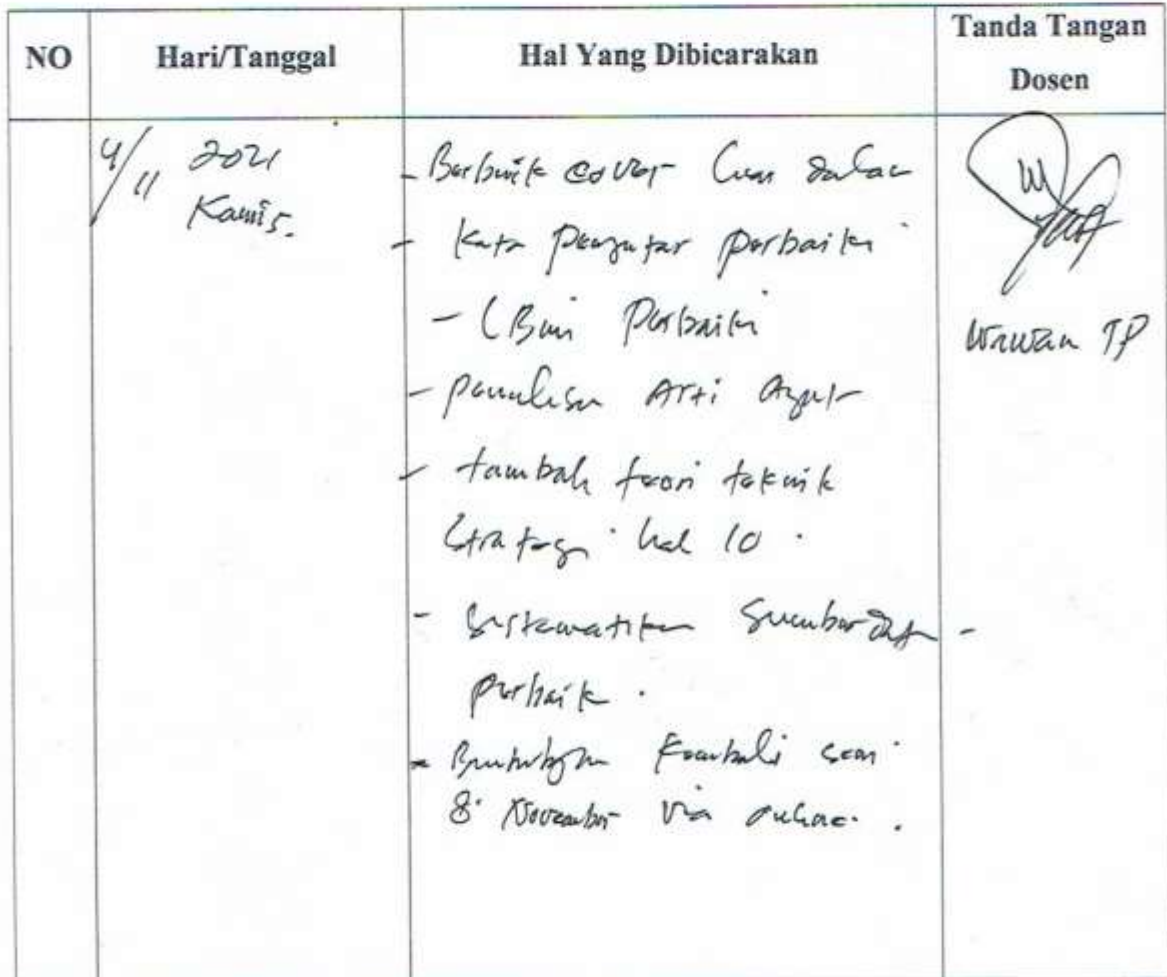 NO
Hari/Tanggal
Hal Yang Dibicarakan
Tanda Tangan
Dosen
4/11 2021
Kamis.
- cover
- Kata Pengantar Perbaiki
- Perbaiki
- penulisan Arti Ayat
- tambah teori teknik
Strategi hal 10.
- Sistematika Sumber data -
perbaiki.
- Bimbingan Kembali
8 November Via
Wawan TP